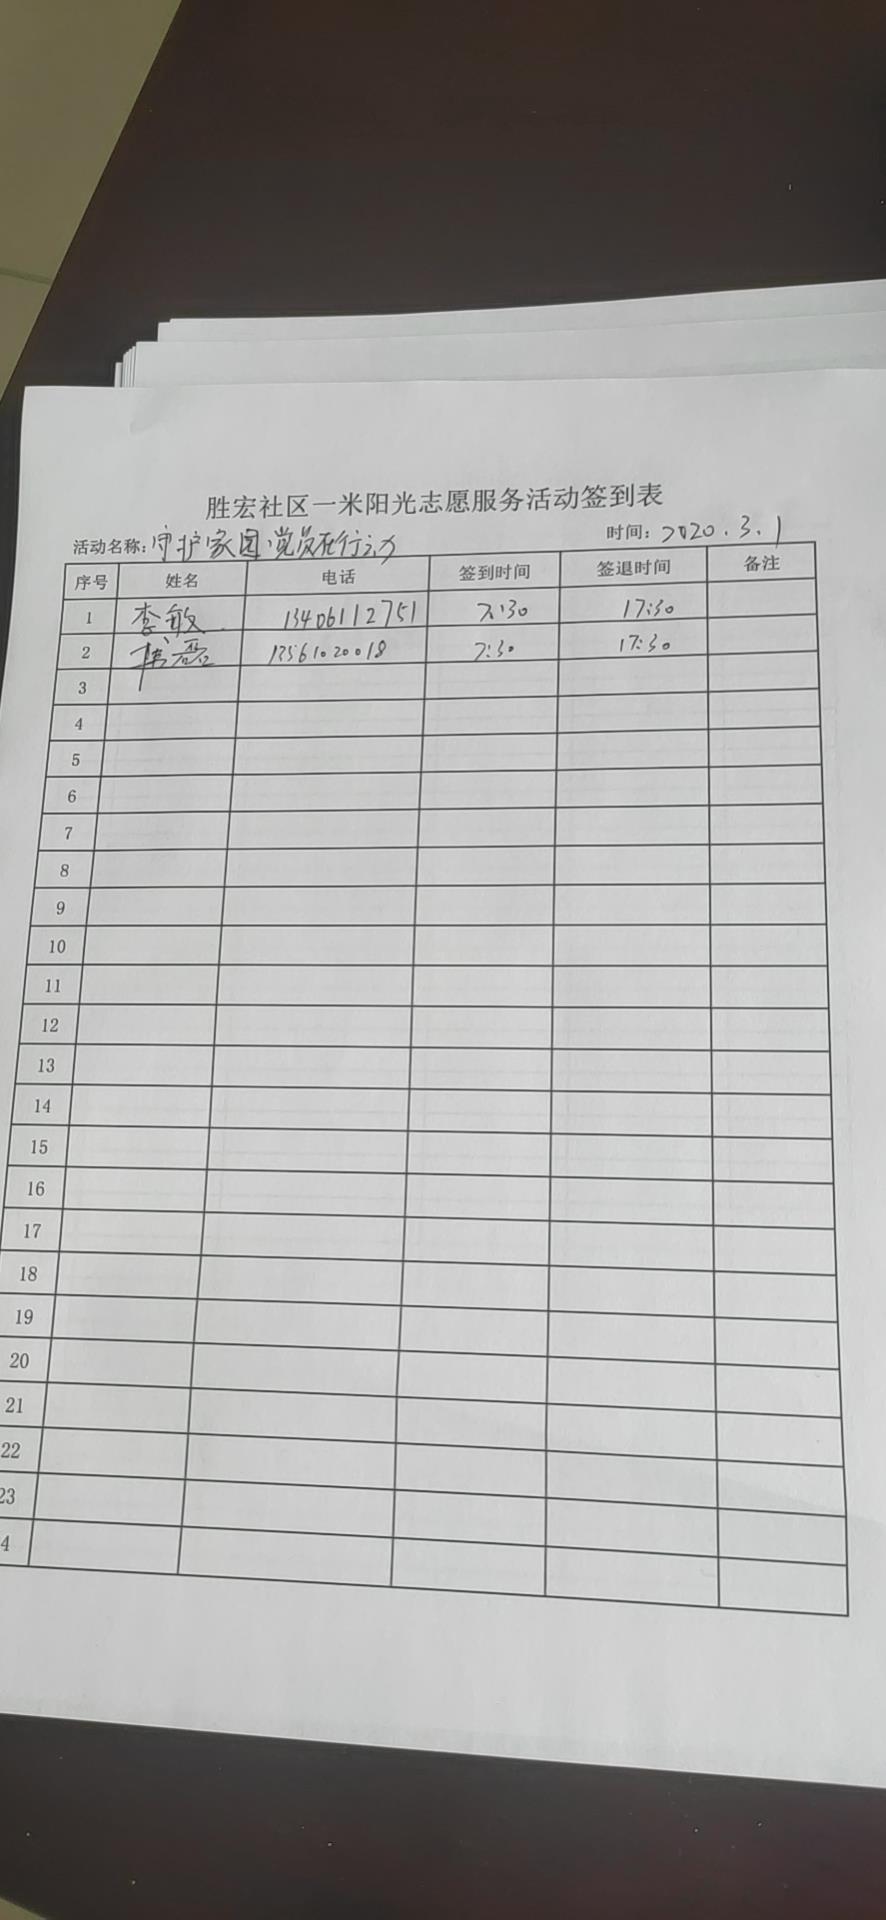 胜宏社区一米阳光志愿服务活动签到表
活动名称：守护家园党员在行动 时间：2020.3.1
序号 姓名 电话 签到时间 签退时间 备注
1 李敏 13406112751 7:30 17:30
2 13561020018 7:30 17:30
3
4
5
6
7
8
9
10
11
12
13
14
15
16
17
18
19
20
21
22
23
4